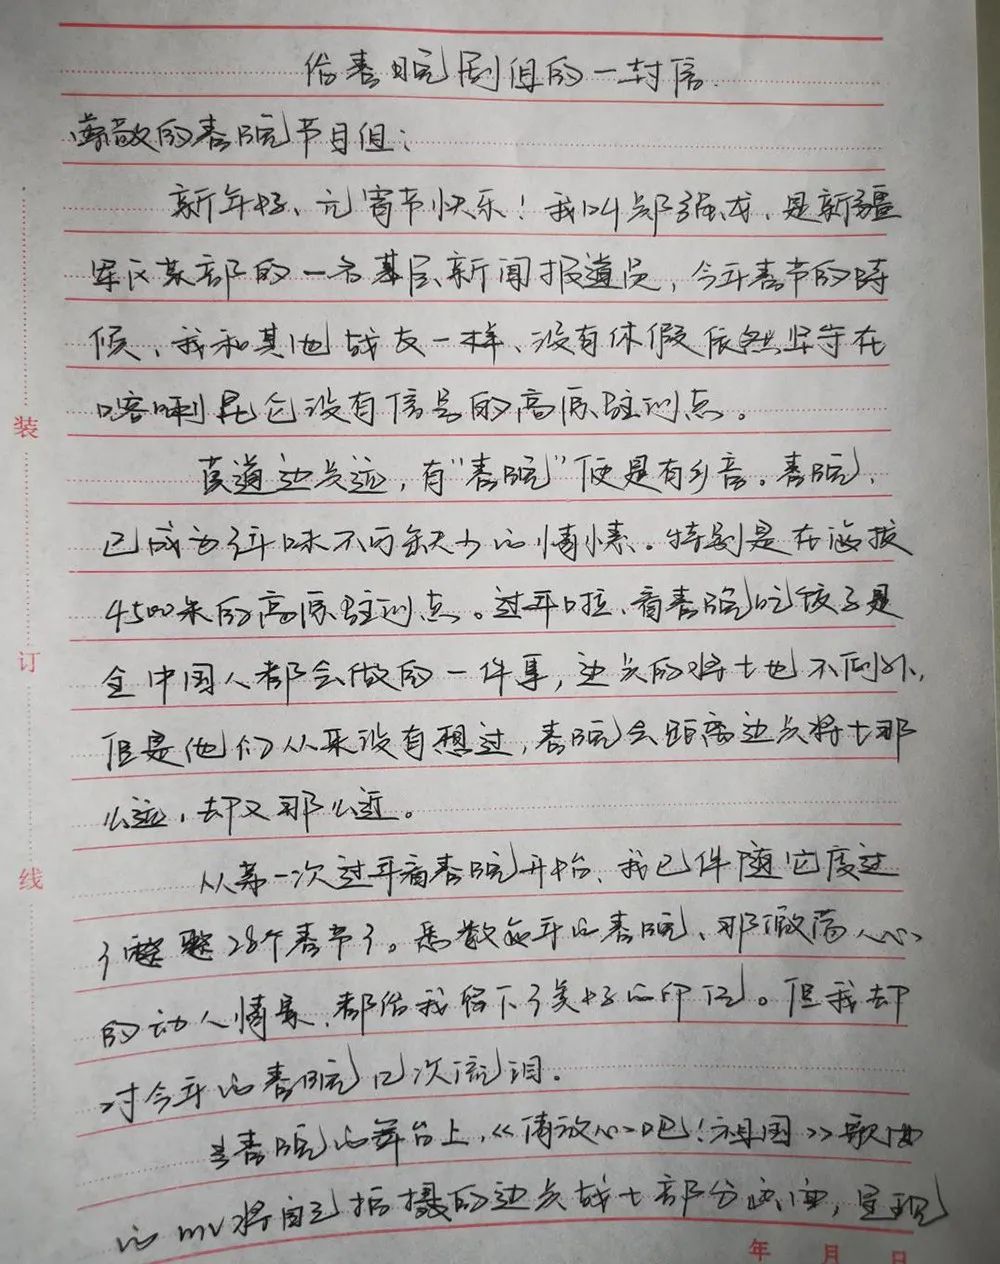 给春晚剧组的一封信
尊敬的春晚节目组：
新年好、元宵节快乐！我叫郑强龙、是新疆
军区某部的一名基层新闻报道员，今年春节的时
候、我和其他战友一样、没有休假依然坚守在
喀喇昆仑没有信号的高原驻训点。
莫道边关远，有“春晚”便是有乡音。春晚、
已成为年味不可缺少的情愫。特别是在海拔
4500米的高原驻训点。过年啦、看春晚吃饺子是
全中国人都会做的一件事，边关的将士也不例外、
但是他们从来没有想过，春晚会距离边关将士那
么远，却又那么近。
从第一次过年看春晚开始、我已伴随它度过
了整整28个春节了。悉数每年的春晚、那激荡人心
的动人情景、都给我留下了美好的印记。但我却
对今年的春晚几次流泪。
当春晚的舞台上，《请放心吧！祖国》歌曲
的mv将自己拍摄的边关战士部分画面，呈现
装
订
线
年 月 日